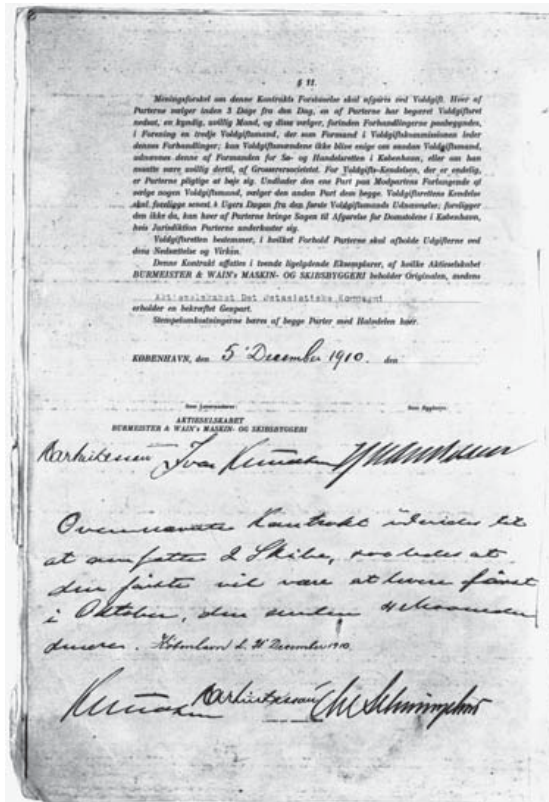 § 11.
Meningsforskel om denne Kontrakts Forstaaelse skal afgøres ved Voldgift. Hver af
Parterne vælger inden 3 Dage fra den Dag, en af Parterne har begæret Voldgiftsret
nedsat, en kyndig, uvillig Mand, og disse vælger, forinden Forhandlingerne paabegyndes,
i Forening en tredje Voldgiftsmand, der som Formand i Voldgiftskommissionen leder
dennes Forhandlinger; kan Voldgiftsmændene ikke blive enige om saadan Voldgiftsmand,
udnævnes denne af Formanden for Sø- og Handelsretten i København, eller om han
maatte være uvillig dertil, af Grosserersocietetet. For Voldgifts-Kendelsen, der er endelig,
er Parterne pligtige at bøje sig. Undlader den ene Part paa Modpartens Forlangende at
vælge nogen Voldgiftsmand, vælger den anden Part dem begge. Voldgiftsrettens Kendelse
skal foreligge senest 4 Ugers Dagen fra den første Voldgiftsmands Udnævnelse; foreligger
den ikke da, kan hver af Parterne bringe Sagen til Afgørelse for Domstolene i København,
hvis Jurisdiktion Parterne underkaster sig.
Voldgiftsretten bestemmer, i hvilket Forhold Parterne skal afholde Udgifterne ved
dens Nedsættelse og Virken.
Denne Kontrakt affattes i tvende ligelydende Eksemplarer, af hvilke Aktieselskabet
BURMEISTER & WAIN's MASKIN- OG SKIBSBYGGERI beholder Originalen, medens
Aktieselskabet Det Østasiatiske Kompagni
erholder en bekræftet Genpart.
Stempelomkostningerne bæres af begge Parter med Halvdelen hver.
KØBENHAVN, den 5' December 1910. den
Som Leverandører: Som Bygherre:
AKTIESELSKABET
BURMEISTER & WAIN's MASKIN- OG SKIBSBYGGERI
Ivar Knudsen
Ovennævnte Kontrakt udvides til
at omfatte 2 Skibe, saaledes at
den første vil være at levere
i Oktober, den anden 4 Maaneder
senere. København d. December 1910.
Knudsen